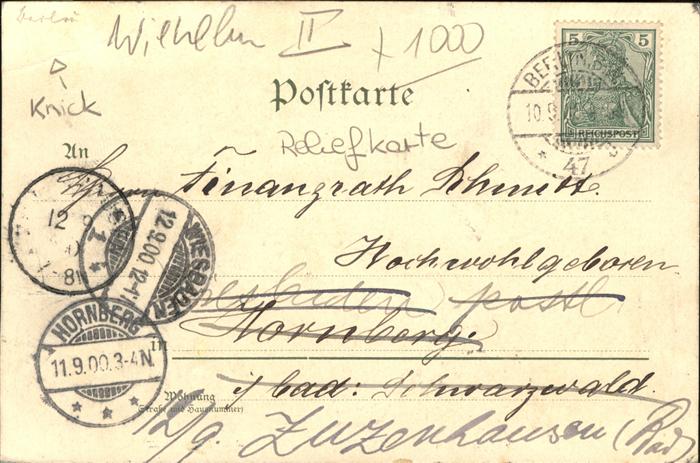 Berlin
Wilhelm II + 1000
Knick
5 5
REICHSPOST
BERLIN
10.9.
47
Postkarte
Reliefkarte
An
Herrn Finanzrath Schmidt.
Hochwohlgeboren
12 9
8
WIESBADEN
12.9.00.12-1
1
Wiesbaden postl
Hornberg.
HORNBERG
11.9.00.3-4N.
in
i/ bad: Schwarzwald.
Wohnung
(Straße und Hausnummer)
12/9. Zuzenhausen (Bad)